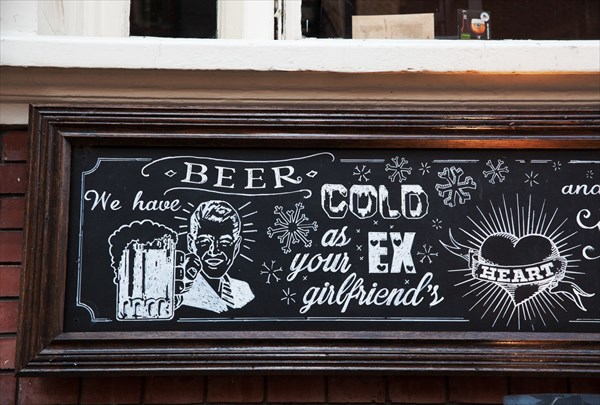 We have BEER
COLD
as
your EX
girlfriend's
HEART
and